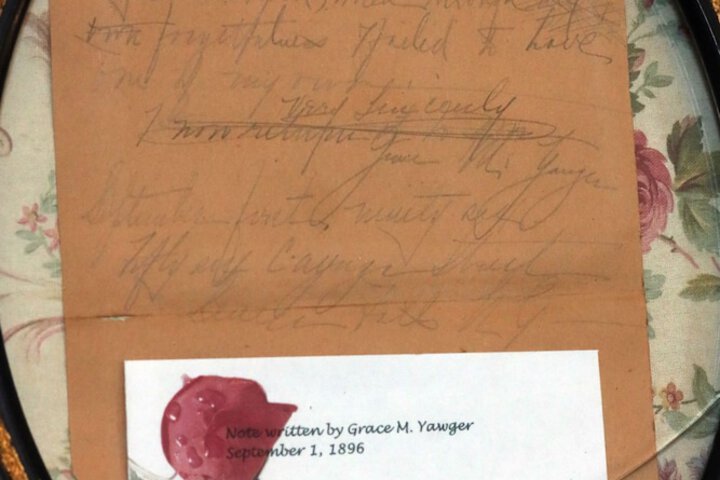 through
own forgetfulness I failed to have
one of my own.
Very Sincerely
I
Grace M. Yawger
September first ninety six
fifty six Cayuga Street
Seneca Falls N.Y.
Note written by Grace M. Yawger
September 1, 1896